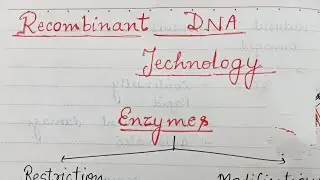 Recombinant DNA
Technology
Enzymes
Restriction